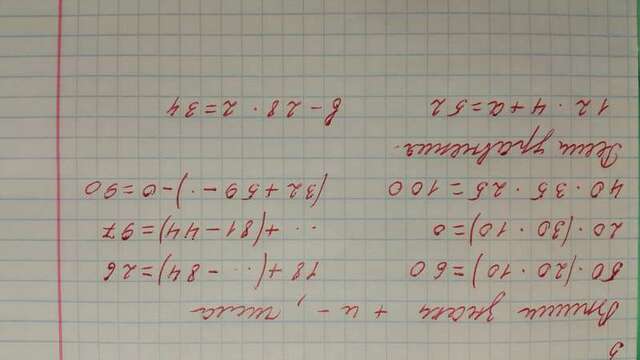 Впиши знаки + и -, числа
50 · (20 · 10) = 60   18 + (.. - 84) = 26
20 · (30 · 10) = 0   .. + (81 - 44) = 97
40 · 35 · 25 = 100   (32 + 59 - ·) - 0 = 90
Реши уравнения.
12 · 4 + а = 52   в - 28 · 2 = 34